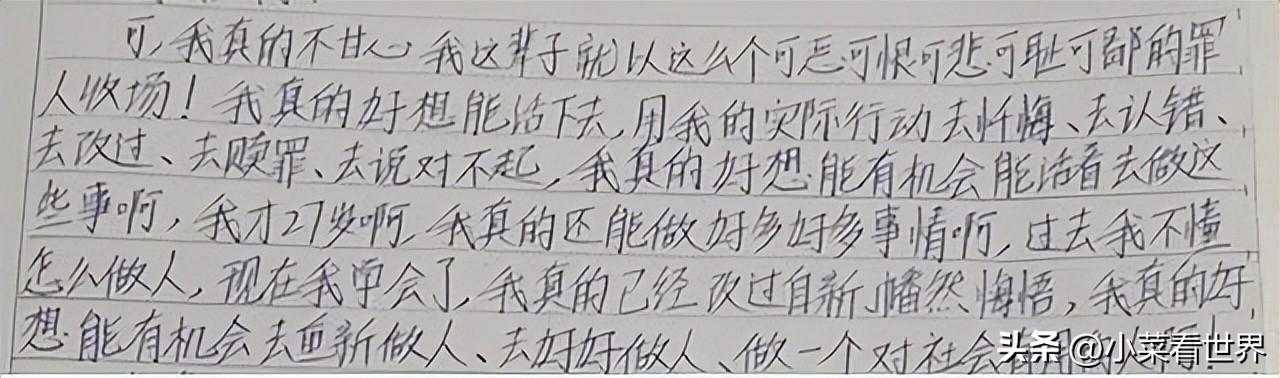 可,我真的不甘心我这辈子就以这么个可恶可恨可悲可耻可鄙的罪
人收场!我真的好想能活下去,用我的实际行动去忏悔、去认错、
去改过、去赎罪、去说对不起,我真的好想能有机会能活着去做这
些事啊,我才27岁啊,我真的还能做好多好多事情啊,过去我不懂
怎么做人,现在我学会了,我真的已经改过自新幡然悔悟,我真的好
想能有机会去重新做人、去好好做人、做一个对社会有用的人啊!
头条 @小菜看世界